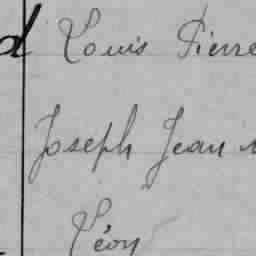 d Louis Pierre
Joseph Jean
Léon